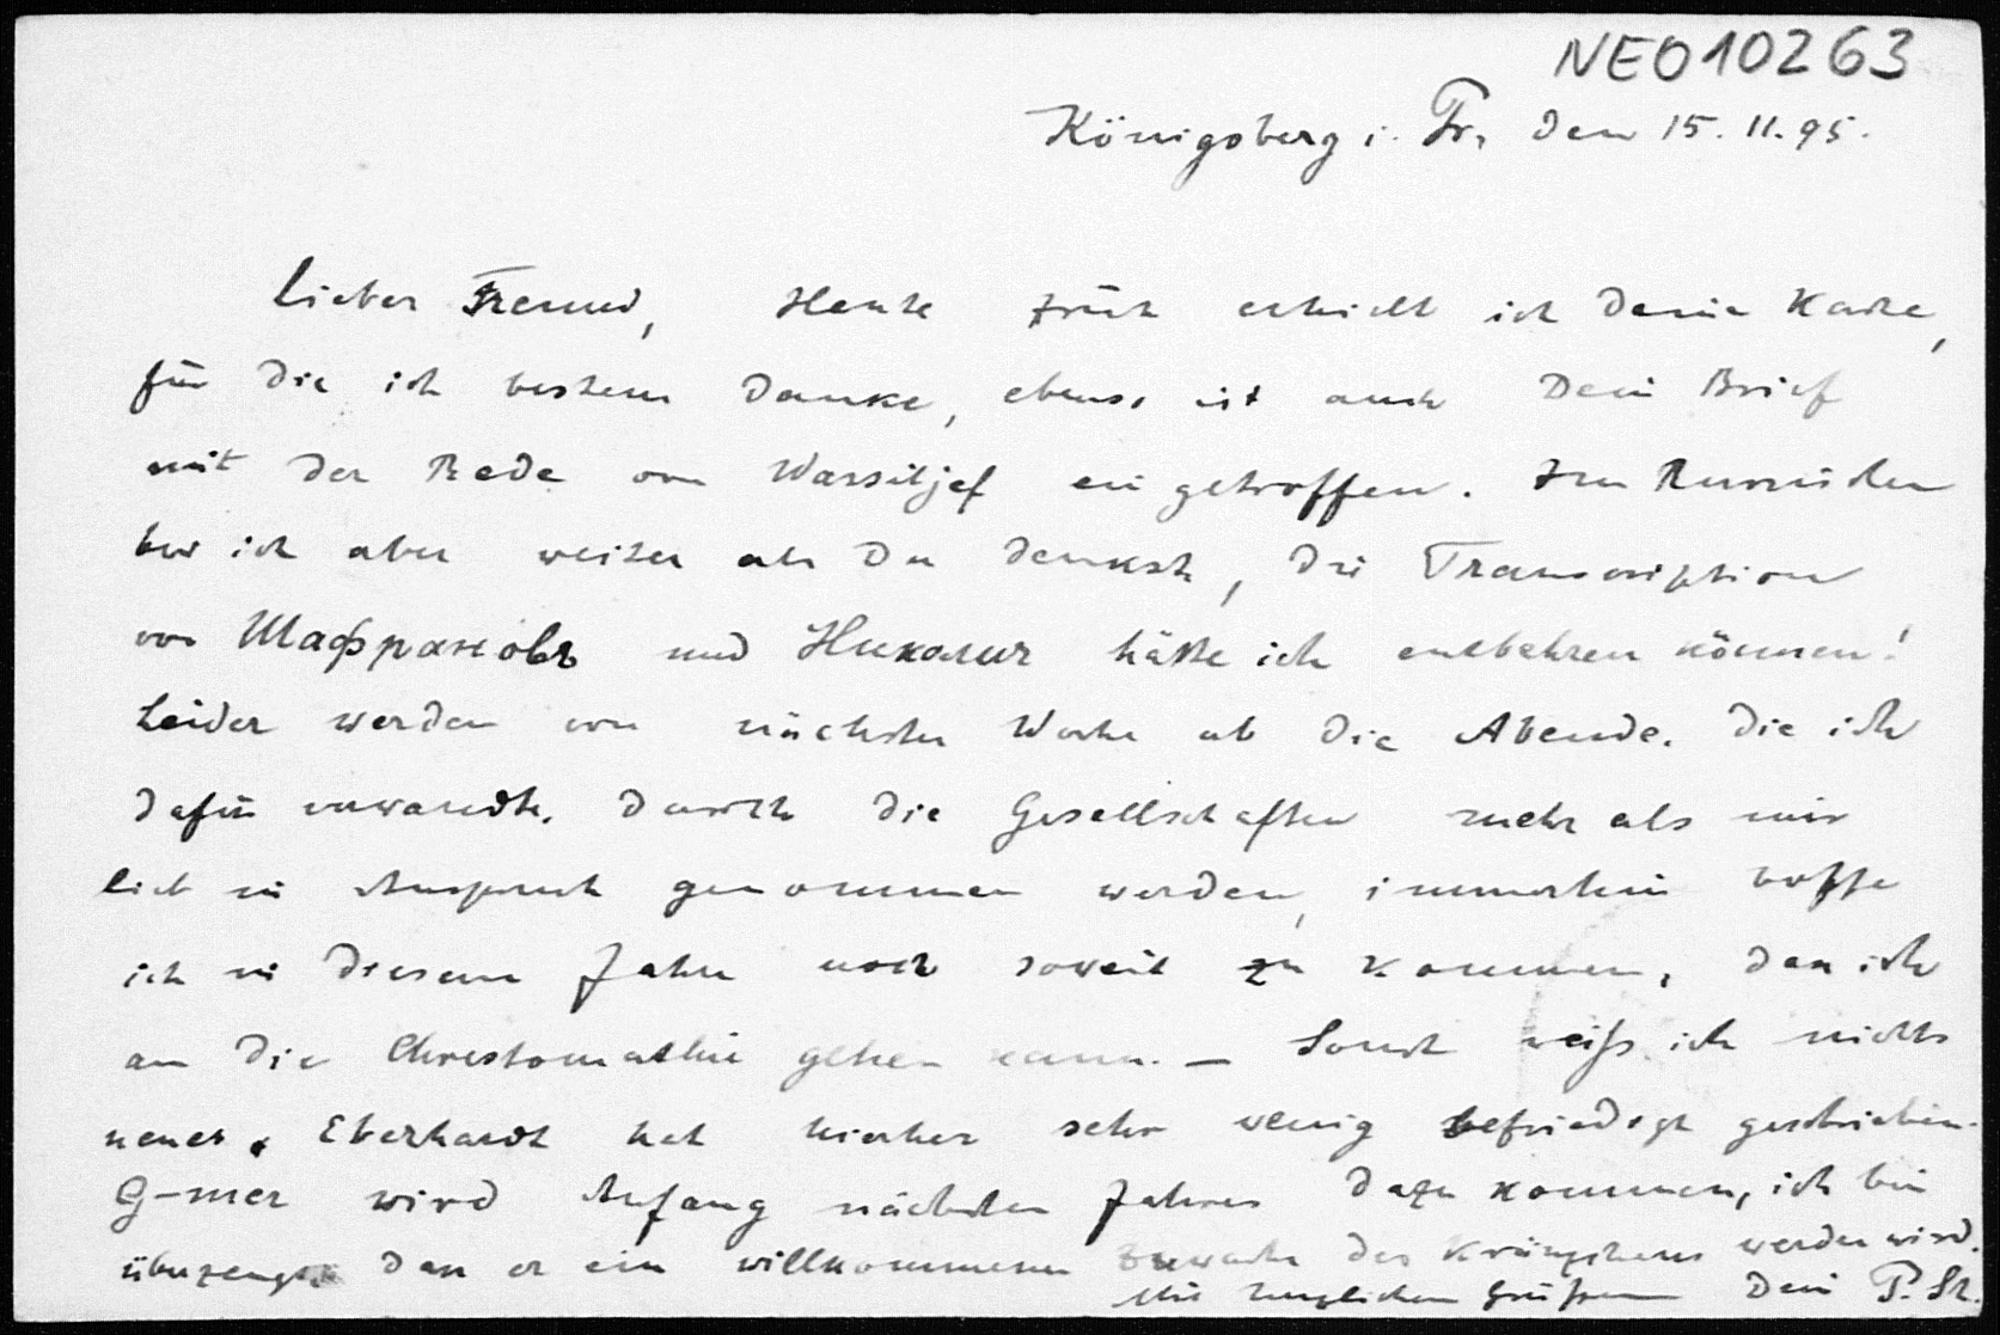 NEO10263
Königsberg i. Pr. den 15. 11. 95.
Lieber Freund, Heute früh erhielt ich Deine Karte,
für die ich bestens danke, ebenso ist auch Dein Brief
mit der Rede von Wassiljef eingetroffen. Im Russischen
bin ich aber weiter als Du denkst, die Transcription
von Шафрановъ und Николич hätte ich entbehren können!
Leider werden von nächster Woche ab die Abende, die ich
dafür verwandte, durch die Gesellschaften mehr als mir
lieb in Anspruch genommen werden, immerhin hoffe
ich in diesem Jahre noch soweit zu kommen, dass ich
an die Chrestomathie gehen kann. – Sonst weiß ich nichts
neues. Eberhardt hat hierher sehr wenig befriedigt geschrieben.
G-mer wird Anfang nächsten Jahres dazu kommen, ich bin
überzeugt, dass er ein willkommener Zuwachs des Kränzchens werden wird.
Mit herzlichen Grüßen Dein P. St.